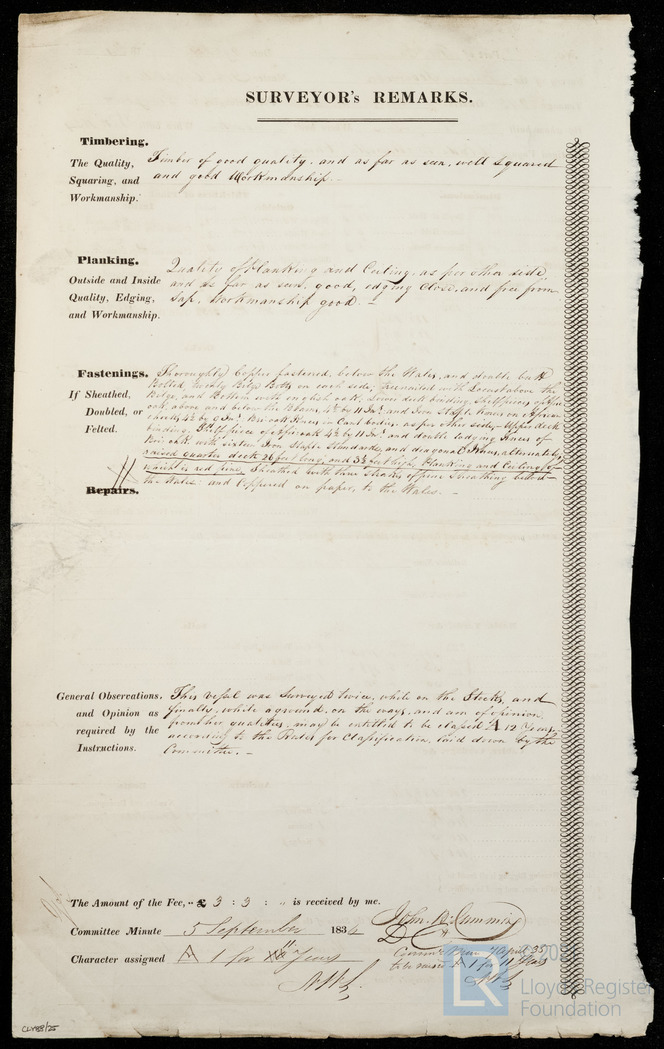 SURVEYOR's REMARKS.
Timbering.
The Quality, Squaring, and Workmanship.
Timber of good quality, and as far as seen, well squared
and good Workmanship. –
Planking.
Outside and Inside Quality, Edging, and Workmanship.
Quality of Planking and Ceiling, as per other side,
and as far as seen, good, edging close, and free from
Sap, Workmanship good. –
Fastenings.
If Sheathed, Doubled, or Felted.
Thoroughly Copper fastened, below the Wales, and double butt
Bolted, twenty Bilge Bolts on each side; treenailed with Locust above the
Bilge, and Bottom with english oak. Lower deck binding, Shelf pieces of
oak, above and below the Beams, 4½ by 11 In^s; and Iron Staple Knees on
in Cant bodies, as per other side, – Upper deck
binding, Shelf piece of oak 4½ by 11 In^s, and double lodging Knees of
oak, with sixteen Iron Staple Standards, and diagonal Knees, alternately,
raised quarter deck 26 feet long, and 3½ feet high, Planking and Ceiling of
which is red pine, Sheathed with three of pine Sheathing
the Wales: and Coppered on paper, to the Wales. –
Repairs.
General Observations, and Opinion as required by the Instructions.
This vessel was Surveyed twice, while on the Stocks, and
finally, while aground, on the ways, and am of opinion,
from her qualities, may be entitled to be classed A 12 Years,
according to the Rules for Classification, laid down by the
Committee. –
The Amount of the Fee, £ 3 : 3 : „ is received by me.
Committee Minute 5 September 183
Character assigned A 1 for Years
7 April 35
to be A 1 for 11 Years
Lloyd's Register
Foundation